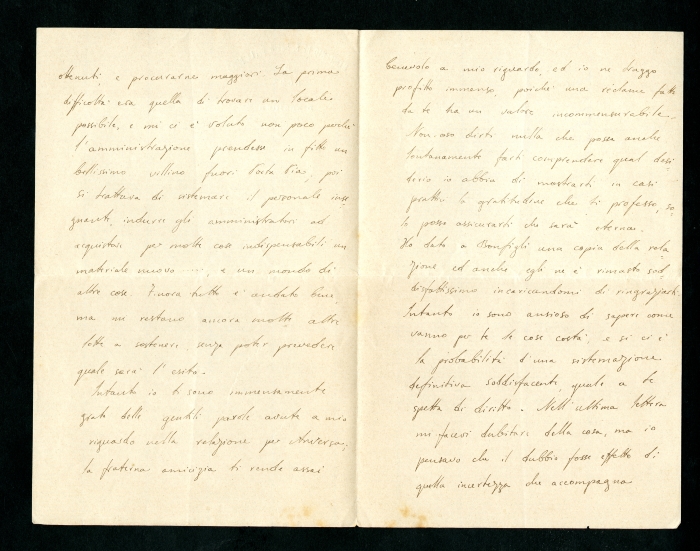 ottenuti e procurarne maggiori. La prima
difficoltà era quella di trovare un locale
possibile, e mi ci è voluto non poco perchè
l'amministrazione prendesse in fitto un
bellissimo villino fuori Porta Pia; poi
si trattava di sistemare il personale inse
gnanti, indurre gli amministratori ad
acquistare per molte cose indispensabili un
materiale nuovo ...., e un mondo di
altre cose. Finora tutto è andato bene,
ma mi restano ancora molte altre
lotte a sostenere, senza poter prevedere
quale sarà l'esito.
Intanto io ti sono immensamente
grato delle gentili parole avute a mio
riguardo nella relazione per Anversa;
la fraterna amicizia ti rende assai
benevolo a mio riguardo, ed io ne traggo
profitto immenso, poichè una réclame fatta
da te ha un valore incommensurabile.
Non oso dirti nulla che possa anche
lontanamente farti comprendere qual desi
derio io abbia di mostrarti in casi
pratici la gratitudine che ti professo, so
lo posso assicurarti che sarà eterna.
Ho dato a Bonfigli una copia della rela
zione, ed anche egli ne è rimasto sod
disfattissimo incaricandomi di ringraziarti.
Intanto io sono ansioso di sapere come
vanno per te le cose costà, e se ci è
la probabilità d'una sistemazione
definitiva soddisfacente, quale a te
spetta di diritto. Nell'ultima lettera
mi facevi dubitare della cosa, ma io
pensavo che il dubbio fosse effetto di
quella incertezza che accompagna